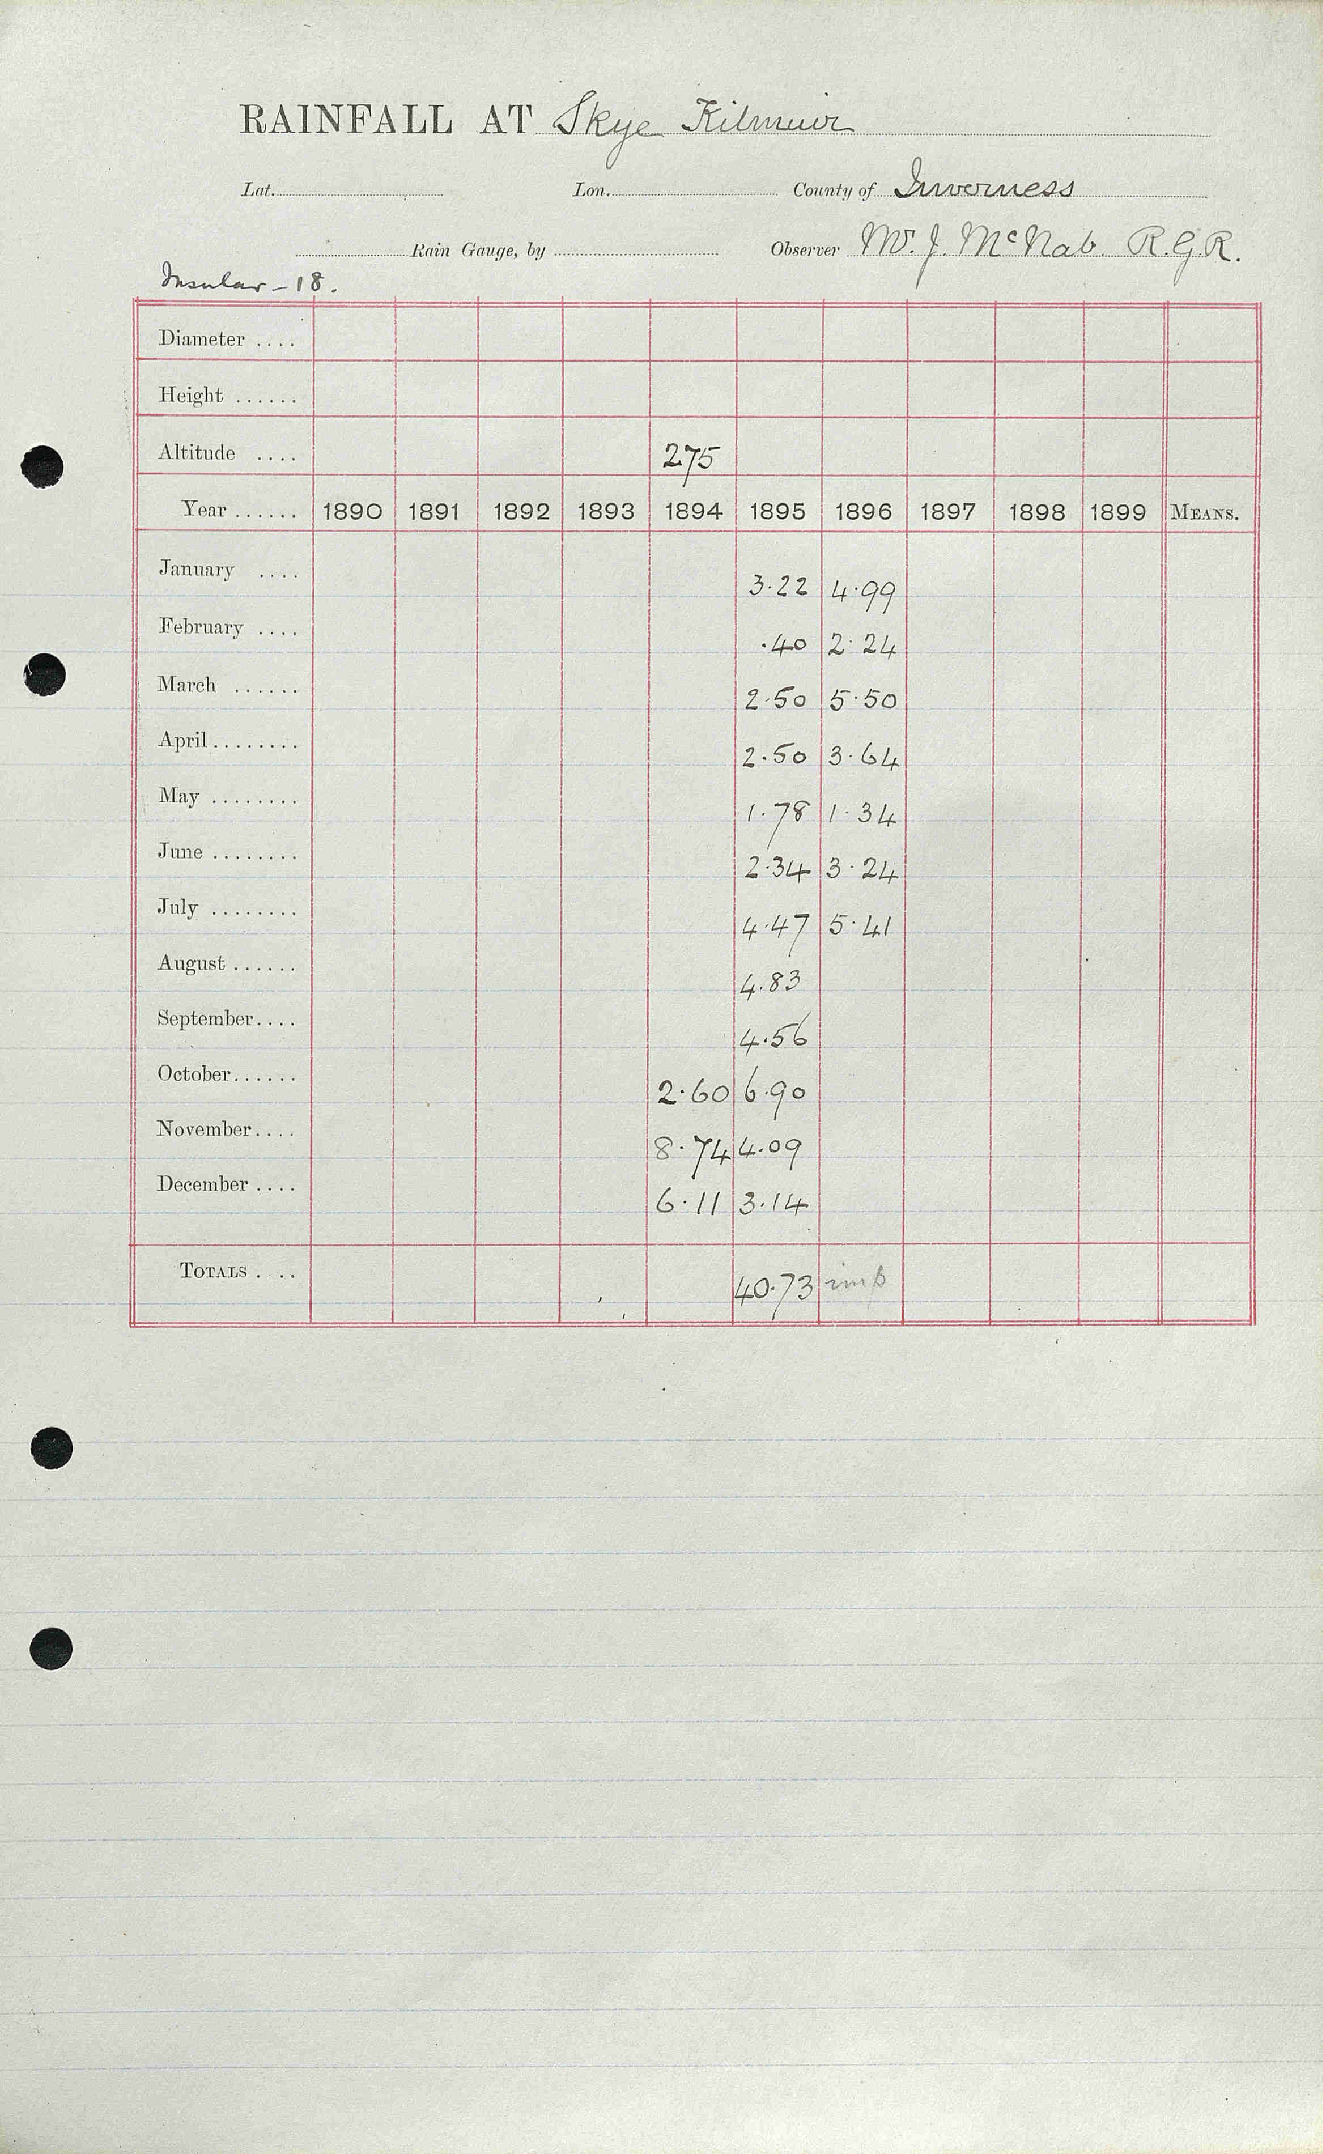 RAINFALL AT Skye Kilmuir
Lat. Lon. County of Inverness
Rain Gauge, by Observer Mr. J. McNab. R.G.R.
Insular - 18.
Diameter ....
Height ......
Altitude .... 275
Year ...... 1890 1891 1892 1893 1894 1895 1896 1897 1898 1899 MEANS.
January .... 3.22 4.99
February .... .40 2.24
March ...... 2.50 5.50
April........ 2.50 3.64
May ........ 1.78 1.34
June ........ 2.34 3.24
July ........ 4.47 5.41
August ...... 4.83
September.... 4.56
October...... 2.60 6.90
November.... 8.74 4.09
December .... 6.11 3.14
TOTALS . .. 40.73 imp